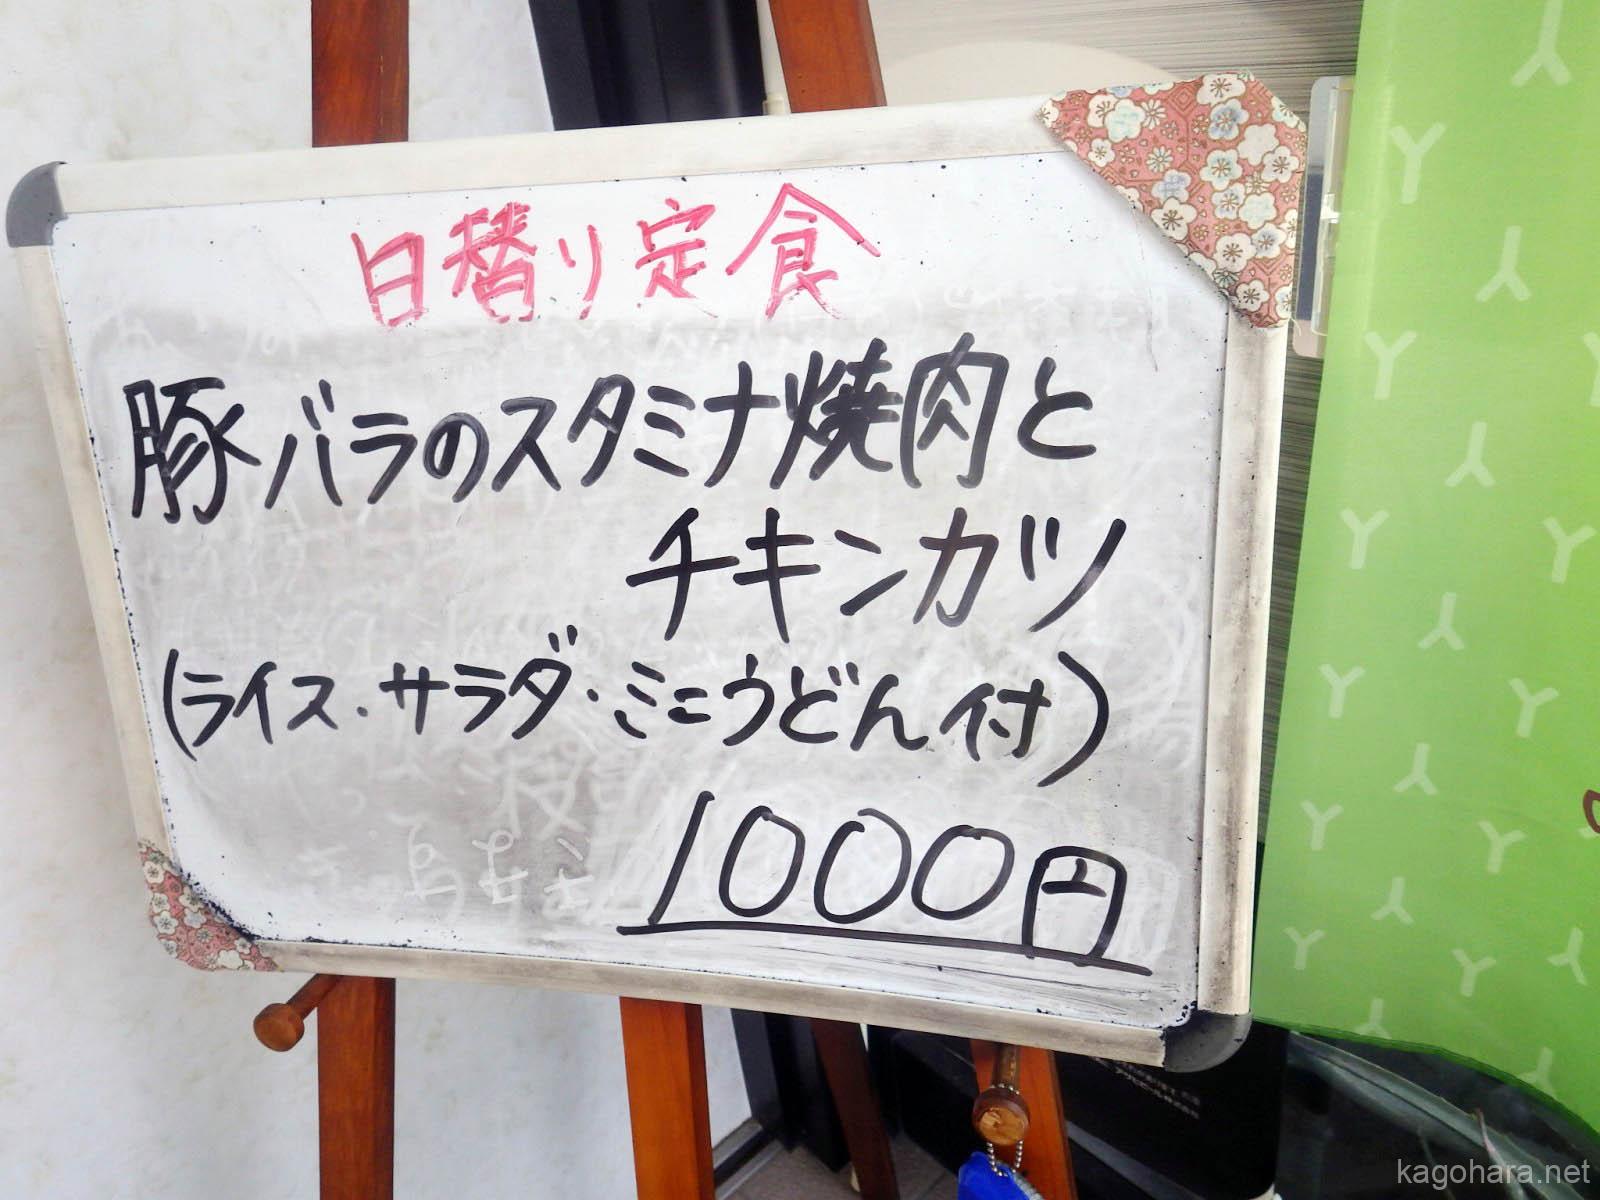 日替り定食
豚バラのスタミナ焼肉と
チキンカツ
(ライス・サラダ・ミニうどん付)
1000円
kagohara.net